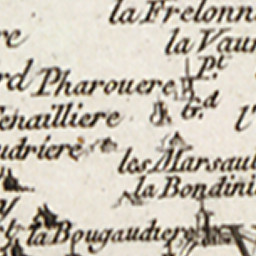 la Frelonn
re
la Vaur
P.t
rd Pharouere
gr.d
enailliere
l'
udriere
les Marsaul
la Bondini
la Bougaudiere